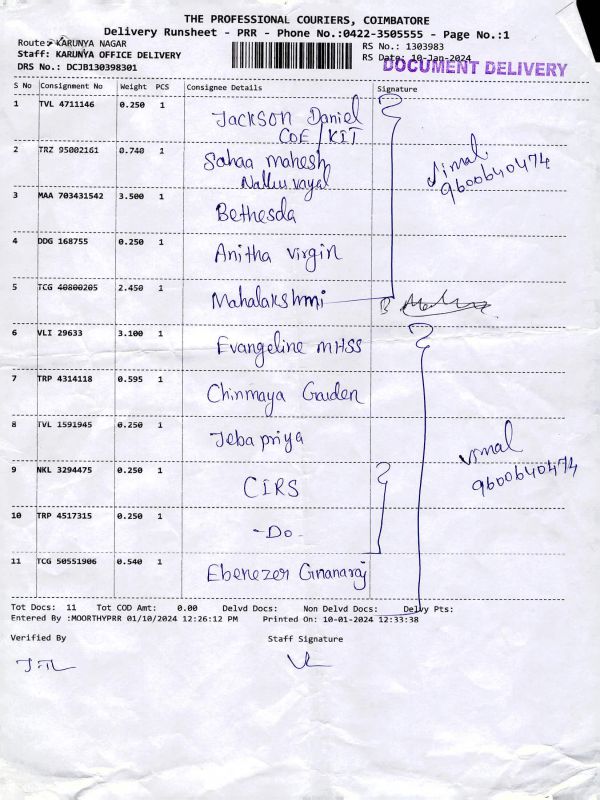 THE PROFESSIONAL COURIERS, COIMBATORE
Delivery Runsheet - PRR - Phone No.:0422-3505555 - Page No.:1
Route: KARUNYA NAGAR
RS No.: 1303983
Staff: KARUNYA OFFICE DELIVERY
RS Date: 10-Jan-2024
DRS No.: DCJB130398301
DOCUMENT DELIVERY
S No Consignment No Weight PCS Consignee Details Signature
1 TVL 4711146 0.250 1 Jackson Daniel
COE / KIT
2 TRZ 95002161 0.740 1 Sahaa mahesh
Nallur vayal
9600640474
3 MAA 703431542 3.500 1 Bethesda
4 DDG 168755 0.250 1 Anitha virgin
5 TCG 40800205 2.450 1 Mahalakshmi
6 VLI 29633 3.100 1 Evangeline MHSS
7 TRP 4314118 0.595 1 Chinmaya Garden
8 TVL 1591945 0.250 1 Jeba priya
vimal
9600640474
9 NKL 3294475 0.250 1 CIRS
10 TRP 4517315 0.250 1 -Do-
11 TCG 50551906 0.540 1 Ebenezer Gnanaraj
Tot Docs: 11 Tot COD Amt: 0.00 Delvd Docs: Non Delvd Docs: Delvy Pts:
Entered By :MOORTHYPRR 01/10/2024 12:26:12 PM Printed On: 10-01-2024 12:33:38
Verified By Staff Signature